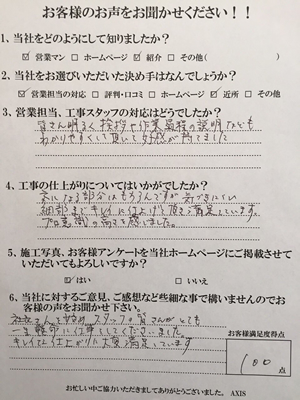 お客様のお声をお聞かせください！！
1、当社をどのようにして知りましたか？
☑ 営業マン □ ホームページ ☑ 紹介 □ その他( )
2、当社をお選びいただいた決め手はなんでしょうか？
☑ 営業担当の対応 □ 評判・口コミ □ ホームページ ☑ 近所 □ その他
3、営業担当、工事スタッフの対応はどうでしたか？
皆さん明るく挨拶や作業過程の説明なども
わかりやすくして頂いて好感が持てました
4、工事の仕上がりについてはいかがでしたか？
気になる部分はもちろんですが気づきにくい
細部までキレイに仕上げて頂き満足しています。
プロ意識の高さを感じました。
5、施工写真、お客様アンケートを当社ホームページにご掲載させて
いただいてもよろしいですか？
☑ はい □ いいえ
6、当社に対するご意見、ご感想など些細な事で構いませんのでお
客様のお声をお聞かせ下さい。
さんを始めスタッフの皆さんがとても
一生懸命に仕事してくださいました
キレイな仕上がりに大変満足しています
お客様満足度得点
100 点
お忙しい中ご協力いただきましてありがとうございました。 AXIS